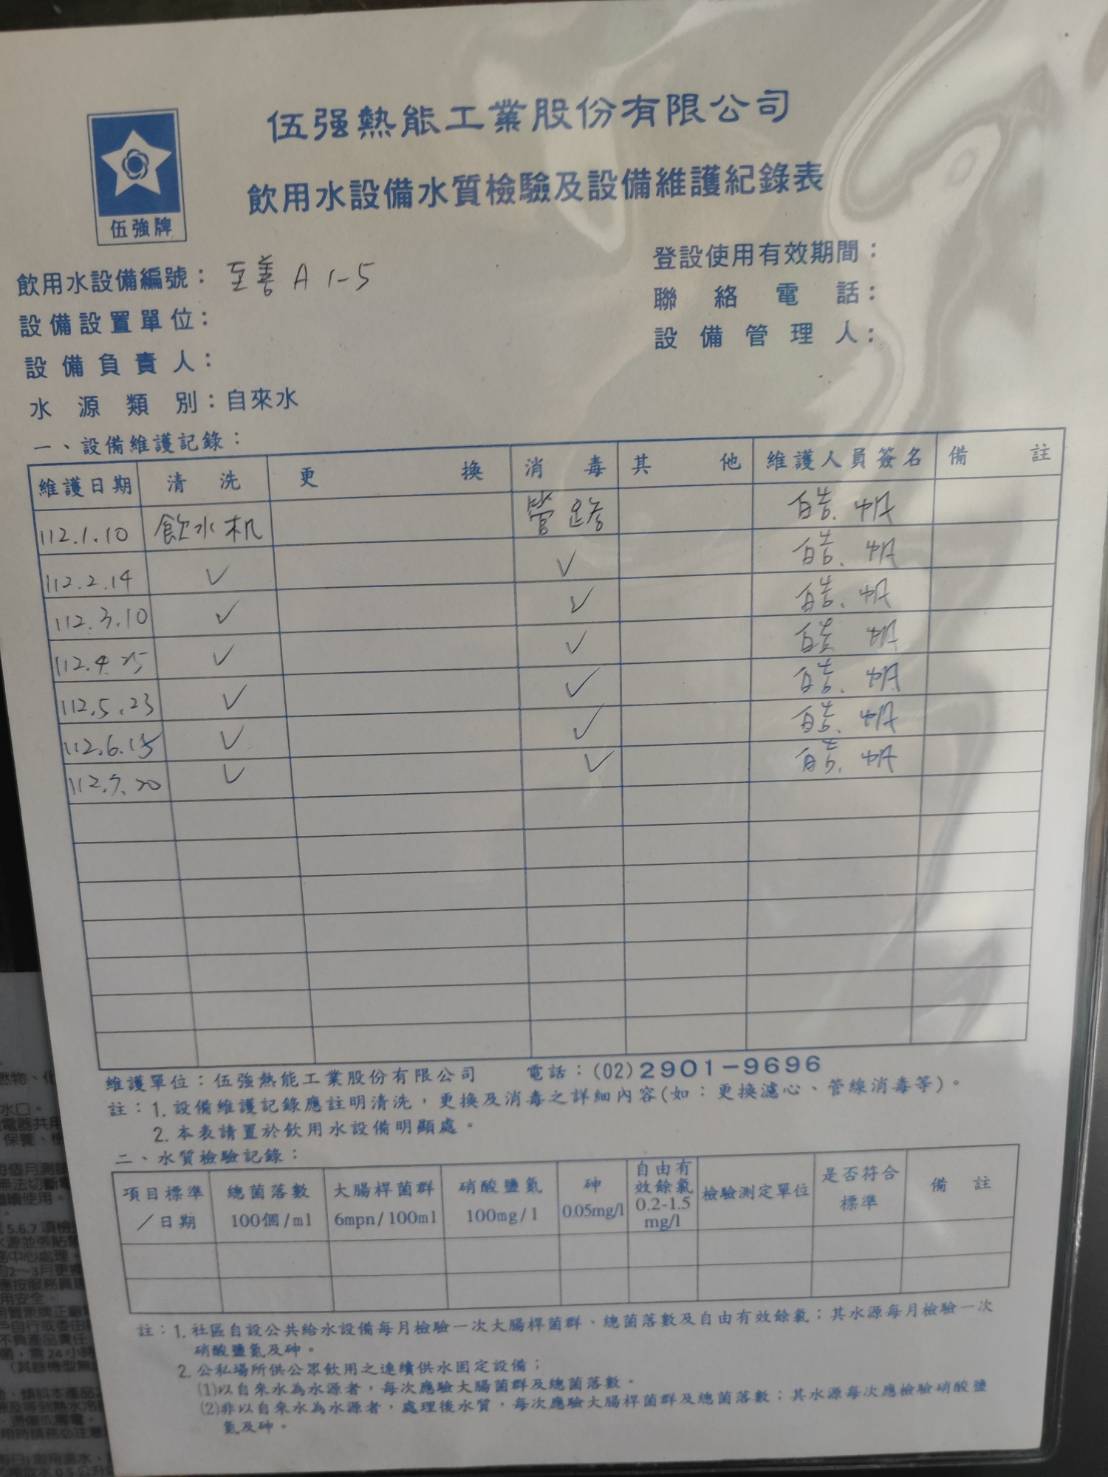 伍強熱能工業股份有限公司
飲用水設備水質檢驗及設備維護紀錄表
伍強牌
飲用水設備編號：至善 A 1-5
登設使用有效期間：
設備設置單位：
聯絡電話：
設備負責人：
設備管理人：
水源類別：自來水
一、設備維護記錄：
維護日期 清洗 更換 消毒 其他 維護人員簽名 備註
112.1.10 飲水机 管路 皓.帆
112.2.14 ✓ ✓ 皓.帆
112.3.10 ✓ ✓ 皓.帆
112.4.25 ✓ ✓ 皓.帆
112.5.23 ✓ ✓ 皓.帆
112.6.15 ✓ ✓ 皓.帆
112.7.20 ✓ ✓ 皓.帆
維護單位：伍強熱能工業股份有限公司 電話：(02)2901-9696
註：1.設備維護記錄應註明清洗，更換及消毒之詳細內容(如：更換濾心、管線消毒等)。
2.本表請置於飲用水設備明顯處。
二、水質檢驗記錄：
項目標準／日期 總菌落數 100個/ml 大腸桿菌群 6mpn/100ml 硝酸鹽氮 100mg/l 砷 0.05mg/l 自由有效餘氯 0.2-1.5 mg/l 檢驗測定單位 是否符合標準 備註
註：1.社區自設公共給水設備每月檢驗一次大腸桿菌群、總菌落數及自由有效餘氯；其水源每月檢驗一次
硝酸鹽氮及砷。
2.公私場所供公眾飲用之連續供水固定設備；
(1)以自來水為水源者，每次應驗大腸菌群及總菌落數。
(2)非以自來水為水源者，處理後水質，每次應驗大腸桿菌群及總菌落數；其水源每次應檢驗硝酸鹽
氮及砷。